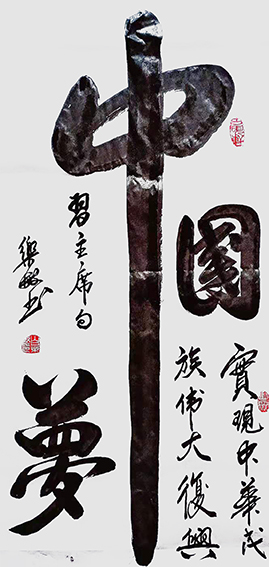 中國夢
實現中華民
族偉大復興
習主席句
樂 書